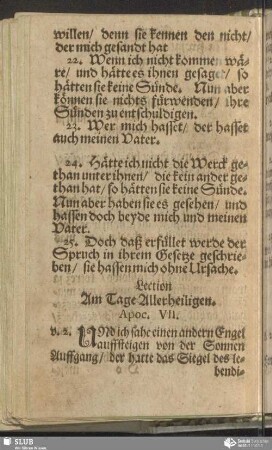 willen/ denn sie kennen den nicht/
der mich gesandt hat
22. Wenn ich nicht kommen wä-
re/ und hätte es ihnen gesaget/ so
hätten sie keine Sünde. Nun aber
können sie nichts fürwenden/ ihre
Sünden zu entschuldigen.
23. Wer mich hasset/ der hasset
auch meinen Vater.
24. Hätte ich nicht die Werck ge-
than unter ihnen/ die kein ander ge-
than hat/ so hätten sie keine Sünde.
Nun aber haben sie es gesehen/ und
hassen doch beyde mich und meinen
Vater.
25. Doch daß erfüllet werde der
Spruch in ihrem Gesetze geschrie-
ben/ sie hassen mich ohne Ursache.
Lection
Am Tage Allerheiligen.
Apoc. VII.
v. 2. UNd ich sahe einen andern Engel
auffsteigen von der Sonnen
Auffgang/ der hatte das Siegel des le-
bendi-
SLUB
Wir führen Wissen.